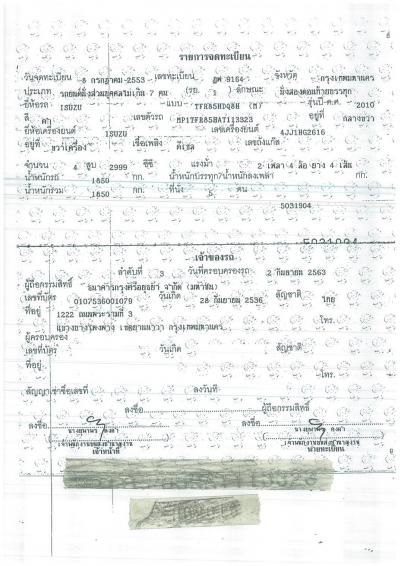 รายการจดทะเบียน
วันจดทะเบียน 8 กรกฎาคม 2553 เลขทะเบียน 9164 จังหวัด กรุงเทพมหานคร
ประเภท รถยนต์นั่งส่วนบุคคลไม่เกิน 7 คน (รย. 1) ลักษณะ นั่งสองตอนท้ายบรรทุก
ยี่ห้อรถ ISUZU แบบ รุ่นปี ค.ศ. 2010
สี ดำ เลขตัวรถ MP1TFR85HAT113323 อยู่ที่ กลางขวา
ยี่ห้อเครื่องยนต์ ISUZU เลขเครื่องยนต์ 4JJ1HG2616
อยู่ที่ ขวาเครื่อง เชื้อเพลิง ดีเซล เลขถังแก๊ส
จำนวน 4 สูบ 2999 ซีซี แรงม้า 2 เพลา 4 ล้อ ยาง 4 เส้น
น้ำหนักรถ 1850 กก. น้ำหนักบรรทุก/น้ำหนักลงเพลา กก.
น้ำหนักรวม 1850 กก. ที่นั่ง 5 คน
5031904
5031904
เจ้าของรถ
ลำดับที่ 3 วันที่ครอบครองรถ 2 กันยายน 2563
ผู้ถือกรรมสิทธิ์ ธนาคารกรุงศรีอยุธยา จำกัด (มหาชน)
เลขที่บัตร 0107536001079 วันเกิด 28 กันยายน 2536 สัญชาติ ไทย
ที่อยู่ 1222 ถนนพระรามที่ 3 โทร.
แขวงบางโพงพาง เขตยานนาวา กรุงเทพมหานคร
ผู้ครอบครอง
เลขที่บัตร วันเกิด สัญชาติ
ที่อยู่ โทร.
สัญญาเช่าซื้อเลขที่ ลงวันที่
ลงชื่อ ผู้ถือกรรมสิทธิ์
ลงชื่อ ลงชื่อ
เจ้าหน้าที่ นายทะเบียน